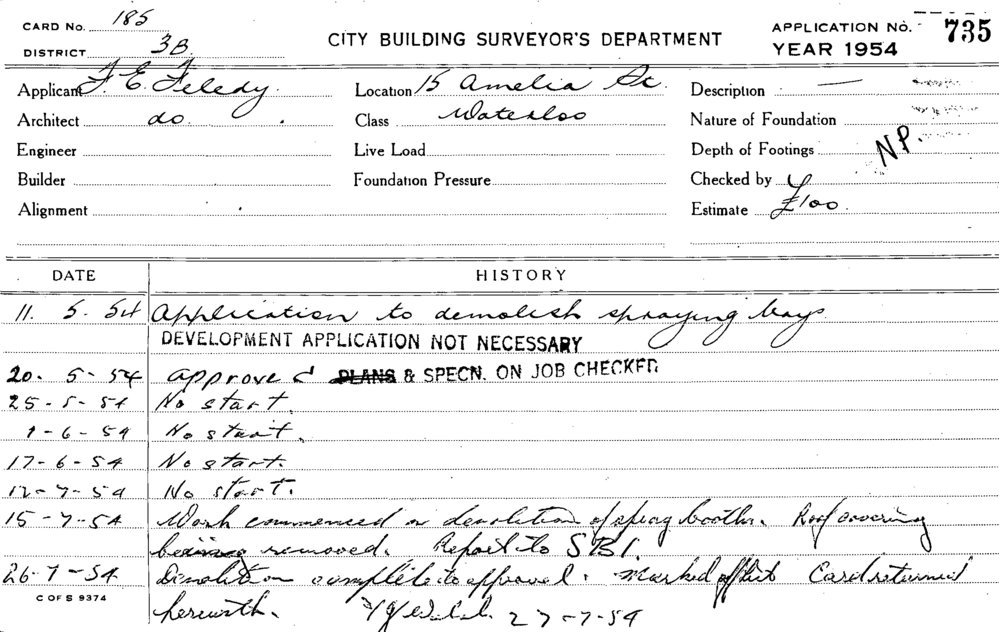 CARD No. 185
DISTRICT 3B
CITY BUILDING SURVEYOR'S DEPARTMENT
APPLICATION No. 735
YEAR 1954
Applicant F. E. Feledy
Location 15 Amelia St.
Description —
Architect do.
Class Waterloo
Nature of Foundation
Engineer
Live Load
Depth of Footings
NP.
Builder
Foundation Pressure
Checked by
Alignment
Estimate £100.
DATE HISTORY
11. 5. 54 Application to demolish spraying bays.
DEVELOPMENT APPLICATION NOT NECESSARY
20. 5-54 Approved PLANS & SPECN. ON JOB CHECKED
25-5-54 No start.
1-6-54 No start.
17-6-54 No start.
12-7-54 No start.
15-7-54 Work commenced on demolition of spray booths. Roof covering
being removed. Report to SBI.
26-7-54 Demolition complete to approval. Marked off list Card returned
herewith. 27-7-54
C OF S 9374